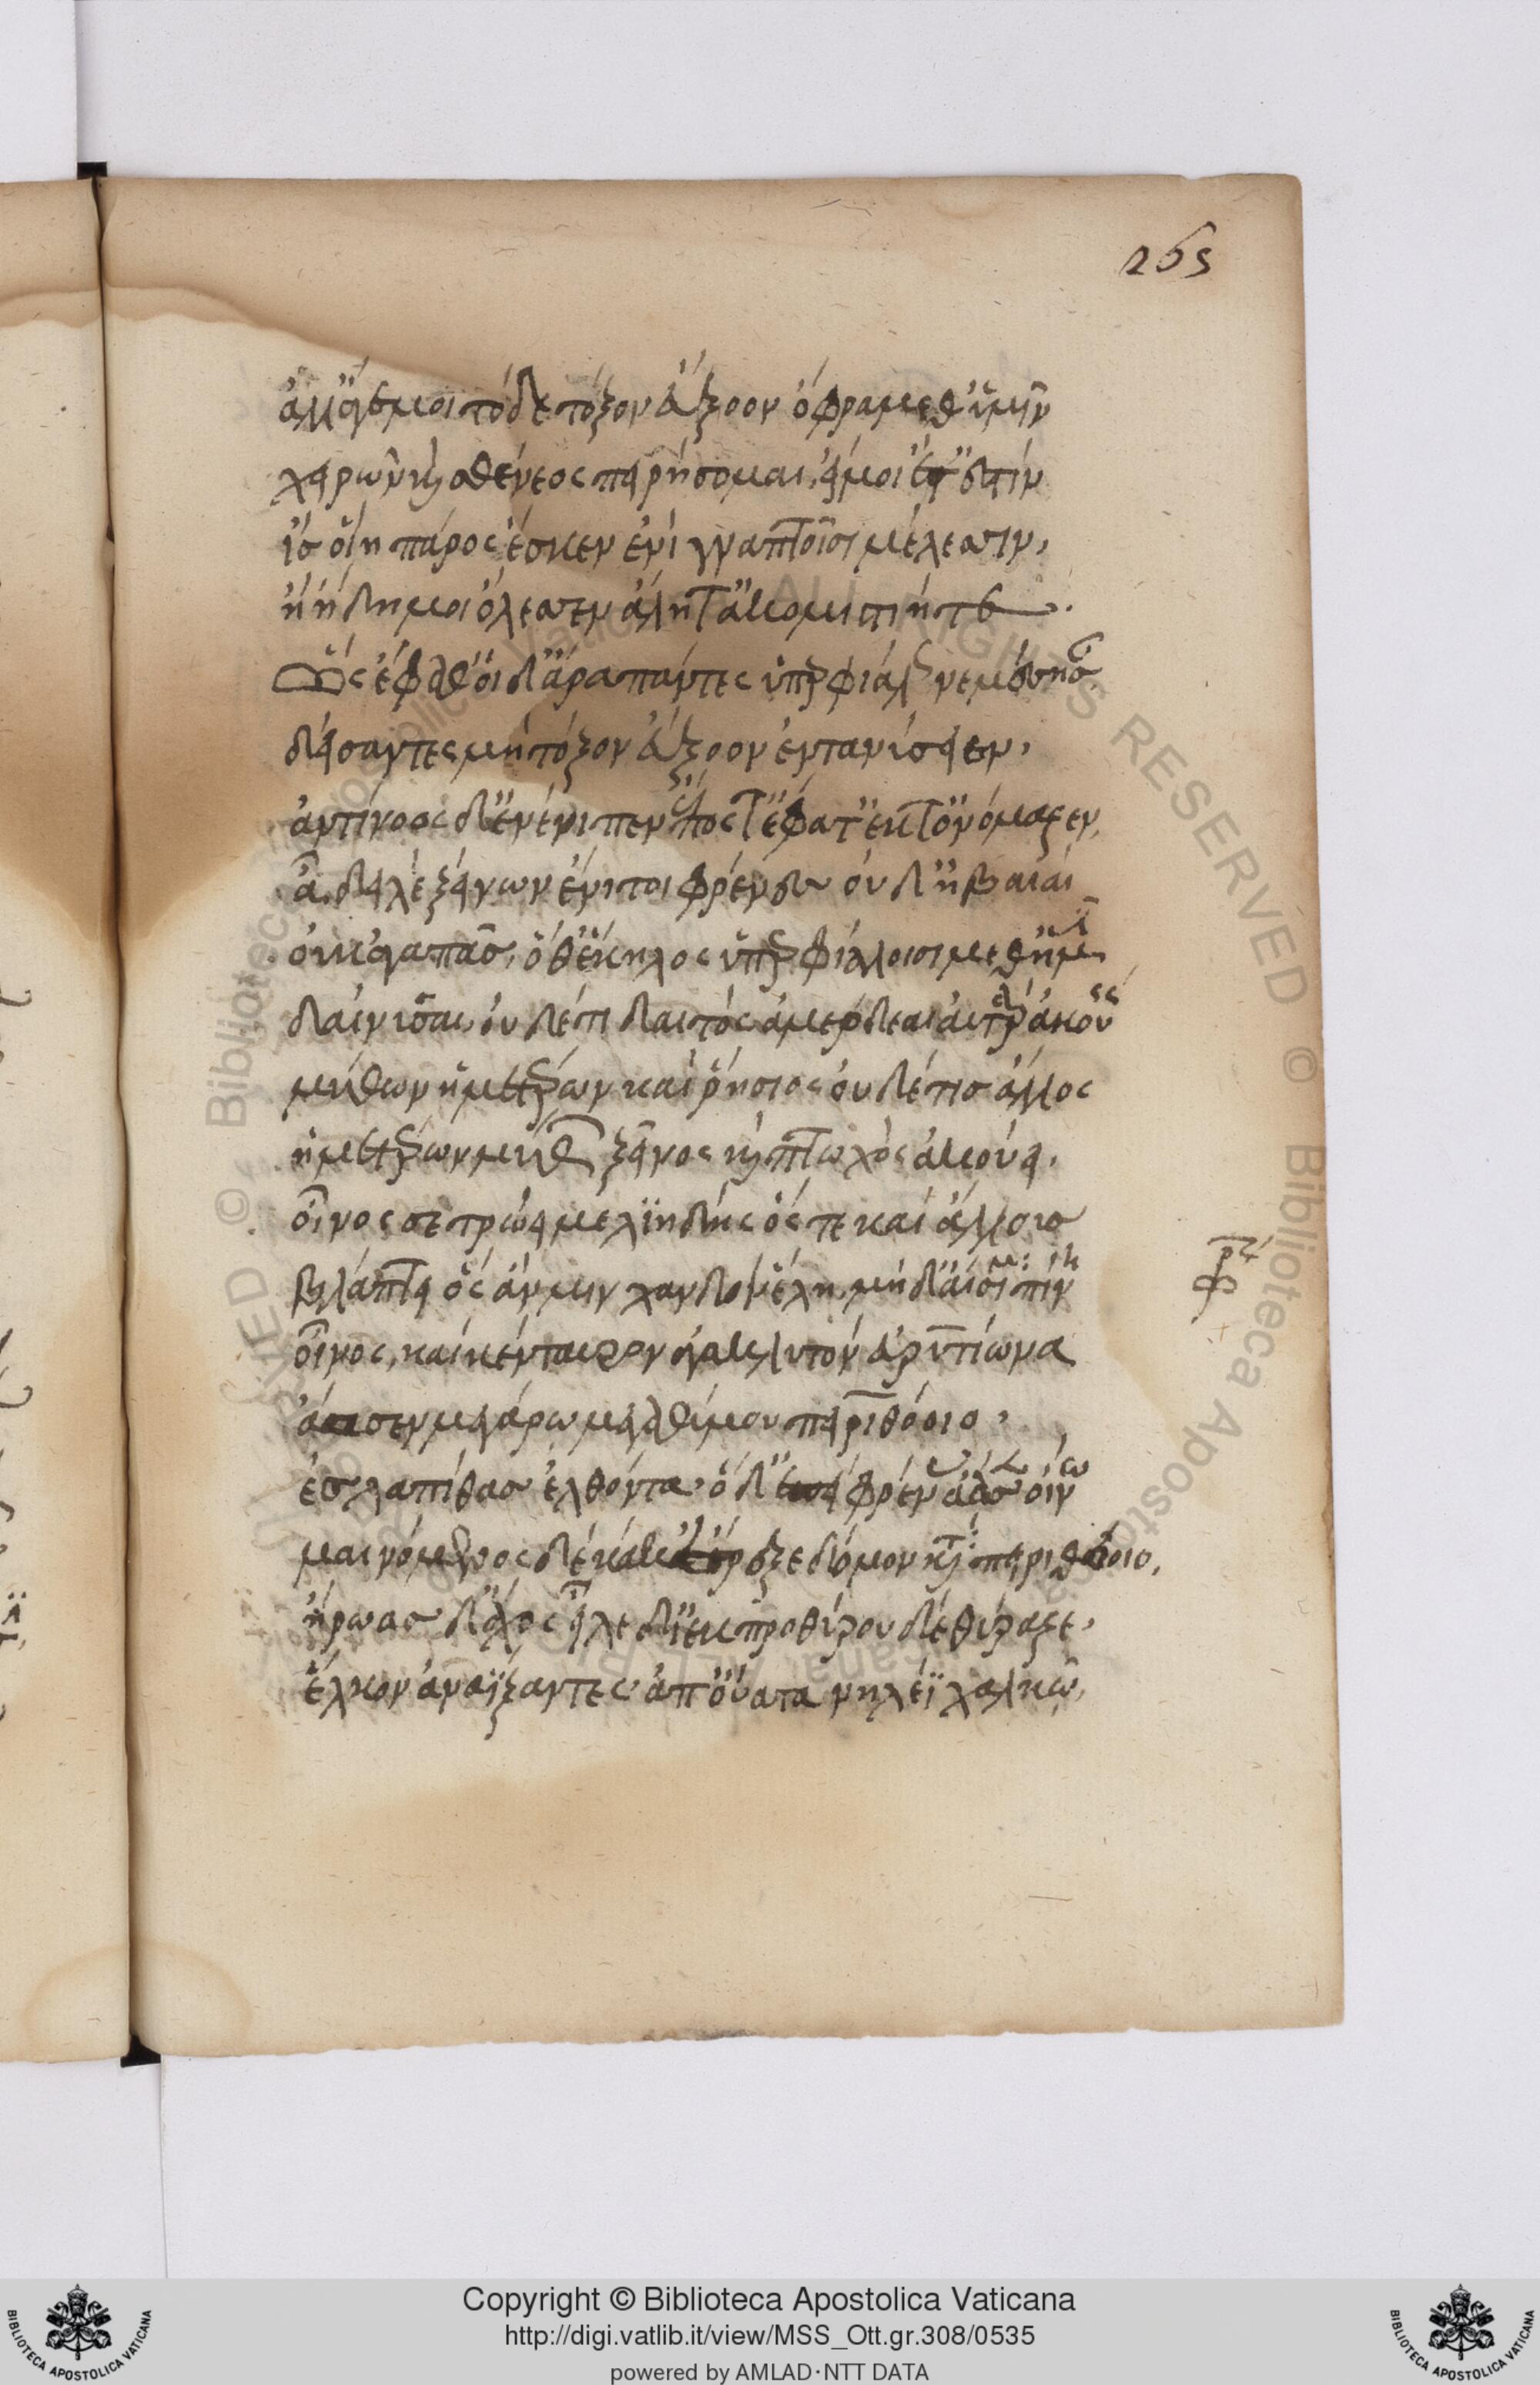 265
ἀλλ' ἄγε μοι τόδε τόξον ἐΰξοον ὄφρα μεθ' ὑμῖν
χειρῶν καὶ σθένεος πειρήσομαι, εἴ μοι ἔτ' ἐστὶν
ἲς οἵη πάρος ἔσκεν ἐνὶ γναπτοῖσι μέλεσσιν,
ἢ ἤδη μοι ὄλεσσεν ἄλη τ' ἀκομιστίη τε.
Ὣς ἔφαθ' οἱ δ' ἄρα πάντες ὑπερφιάλως νεμέσησαν
δείσαντες μὴ τόξον ἐΰξοον ἐντανύσειεν,
ἀντίνοος δ' ἐνένιπεν ἔπος τ' ἔφατ' ἔκ τ' ὀνόμαζεν,
ἆ δειλὲ ξείνων ἔνι τοι φρένες οὐδ' ἠβαιαί
οὐκ ἀγαπᾷς, ὃ ἕκηλος ὑπερφιάλοισι μεθ' ἡμῖν
δαίνυσαι, οὐδέ τι δαιτὸς ἀμέρδεαι αὐτὰρ ἀκούεις
μύθων ἡμετέρων καὶ ῥήσιος οὐδέ τις ἄλλος
ἡμετέρων μύθων ξεῖνος καὶ πτωχὸς ἀκούει,
οἶνός σε τρώει μελιηδὴς ὅς τε καὶ ἄλλους
βλάπτει ὃς ἄν μιν χανδὸν ἕλῃ μὴ δ' αἴσιμα πίνῃ
οἶνος, καὶ κένταυρον ἀγακλυτὸν εὐρυτίωνα
ἄασεν μεγάρῳ μεγαθύμου πειριθόοιο,
ἐς λαπίθας ἐλθόντα, ὁ δ' ἐπεὶ φρένας ἄασεν οἴνῳ
μαινόμενος κάκ' ἔρεξε δόμον κάτα πειριθόοιο,
ἥρωας δ' ἄχος εἷλε διὲκ προθύρου δὲ θύραζε,
ἕλκον ἀναΐξαντες ἀπ' οὔατα νηλέϊ χαλκῷ,
Copyright © Biblioteca Apostolica Vaticana
http://digi.vatlib.it/view/MSS_Ott.gr.308/0535
powered by AMLAD·NTT DATA